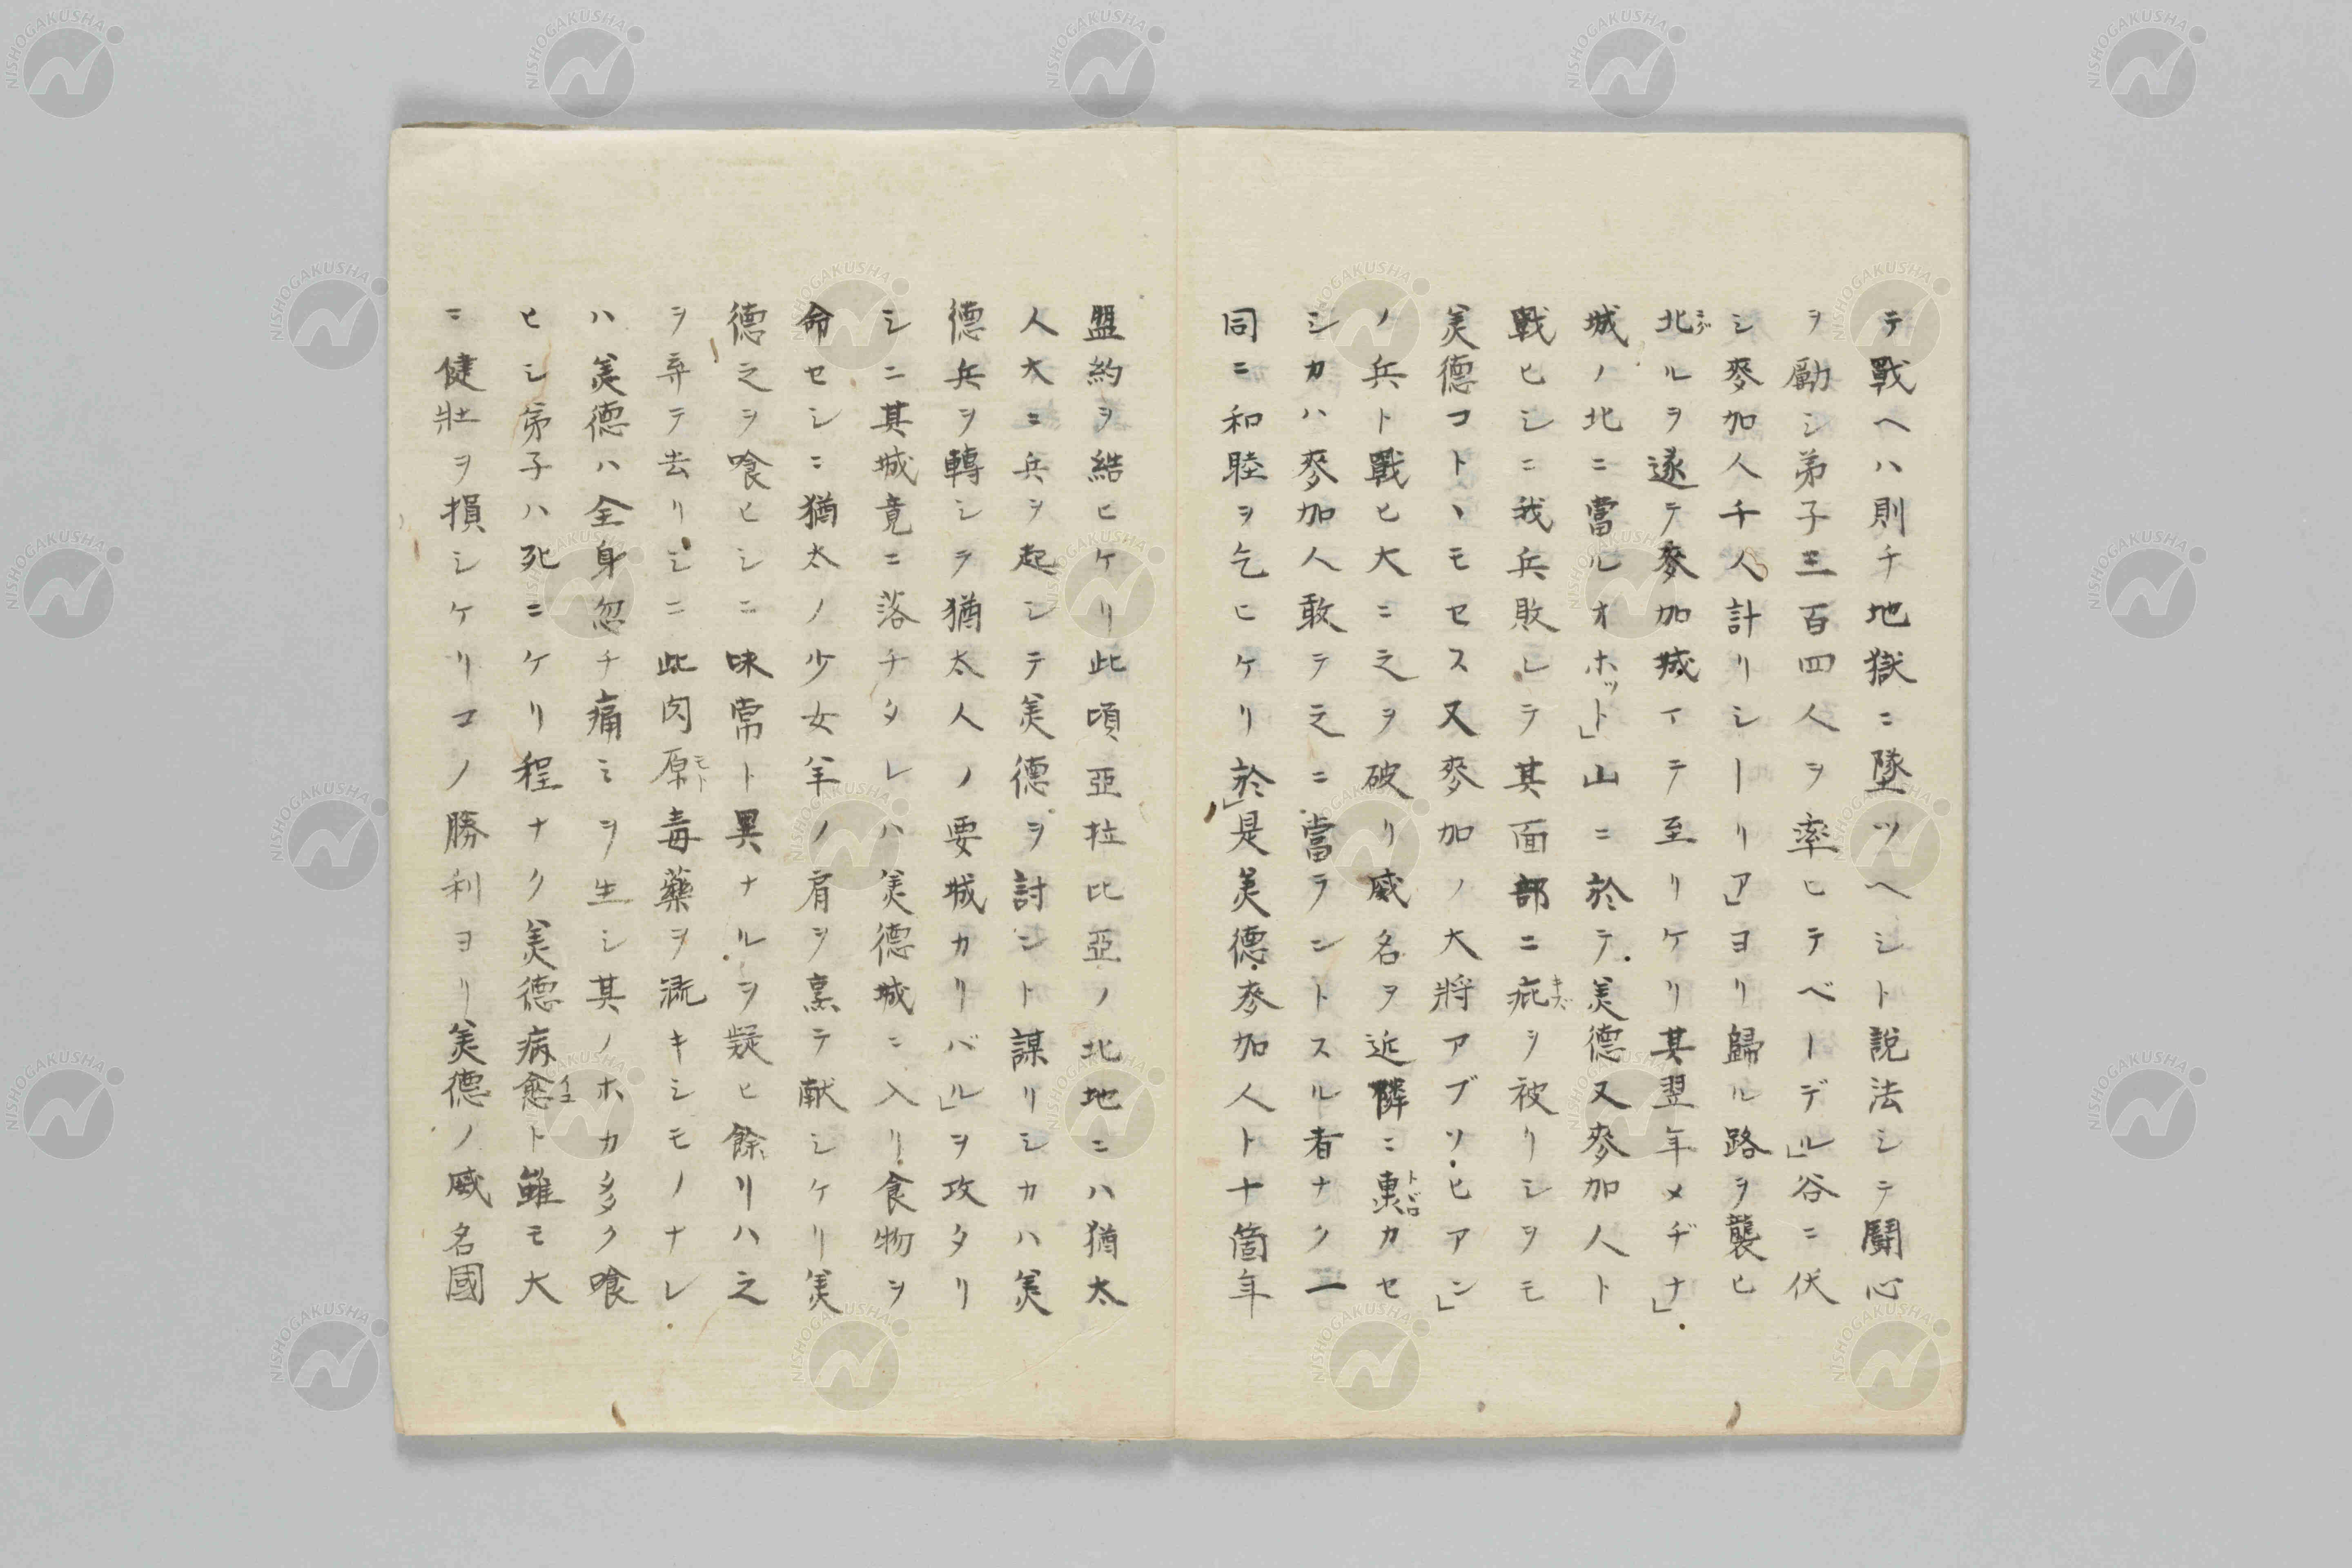 テ戰ヘハ則チ地獄ニ墜ツヘシト説法シテ鬭心
ヲ勵シ弟子三百四人ヲ率ヒテベーデル」谷ニ伏
シ麥加人千人計リシーリア」ヨリ歸ル路ヲ襲ヒ
北ルヲ逐テ麥加城イテ至リケリ其翌年メヂナ」
城ノ北ニ當ルオホット」山ニ於テ美德又麥加人ト
戰ヒシニ我兵敗レテ其面部ニ疵キズヲ被リシヲモ
美德コトヽモセス又麥加ノ大將アブソヒアン」
ノ兵ト戰ヒ大ニ之ヲ破リ威名ヲ近隣ニ轟トドロカセ
シカハ麥加人敢テ之ニ當ラントスル者ナク一
同ニ和睦ヲ乞ヒケリ於」是美德麥加人ト十箇年
盟約ヲ結ヒケリ此頃亞拉比亞ノ北地ニハ猶太
人大ニ兵ヲ起シテ美德ヲ討ント謀リシカハ美
德兵ヲ轉シテ猶太人ノ要城カリバル」ヲ攻タリ
シニ其城竟ニ落チタレハ美德城ニ入リ食物ヲ
命セシニ猶太ノ少女羊ノ肩ヲ烹テ献シケリ美
德之ヲ喰ヒシニ味常ト異ナルヲ疑ヒ餘リハ之
ヲ弃テ去リシニ此肉原モト毒藥ヲ流キシモノナレ
ハ美德ハ全身忽チ痛ミヲ生シ其ノホカ多ク喰
ヒシ弟子ハ死ニケリ程ナク美德病愈イユト雖モ大
ニ健壯ヲ損シケリコノ勝利ヨリ美德ノ威名國
NISHOGAKUSHA